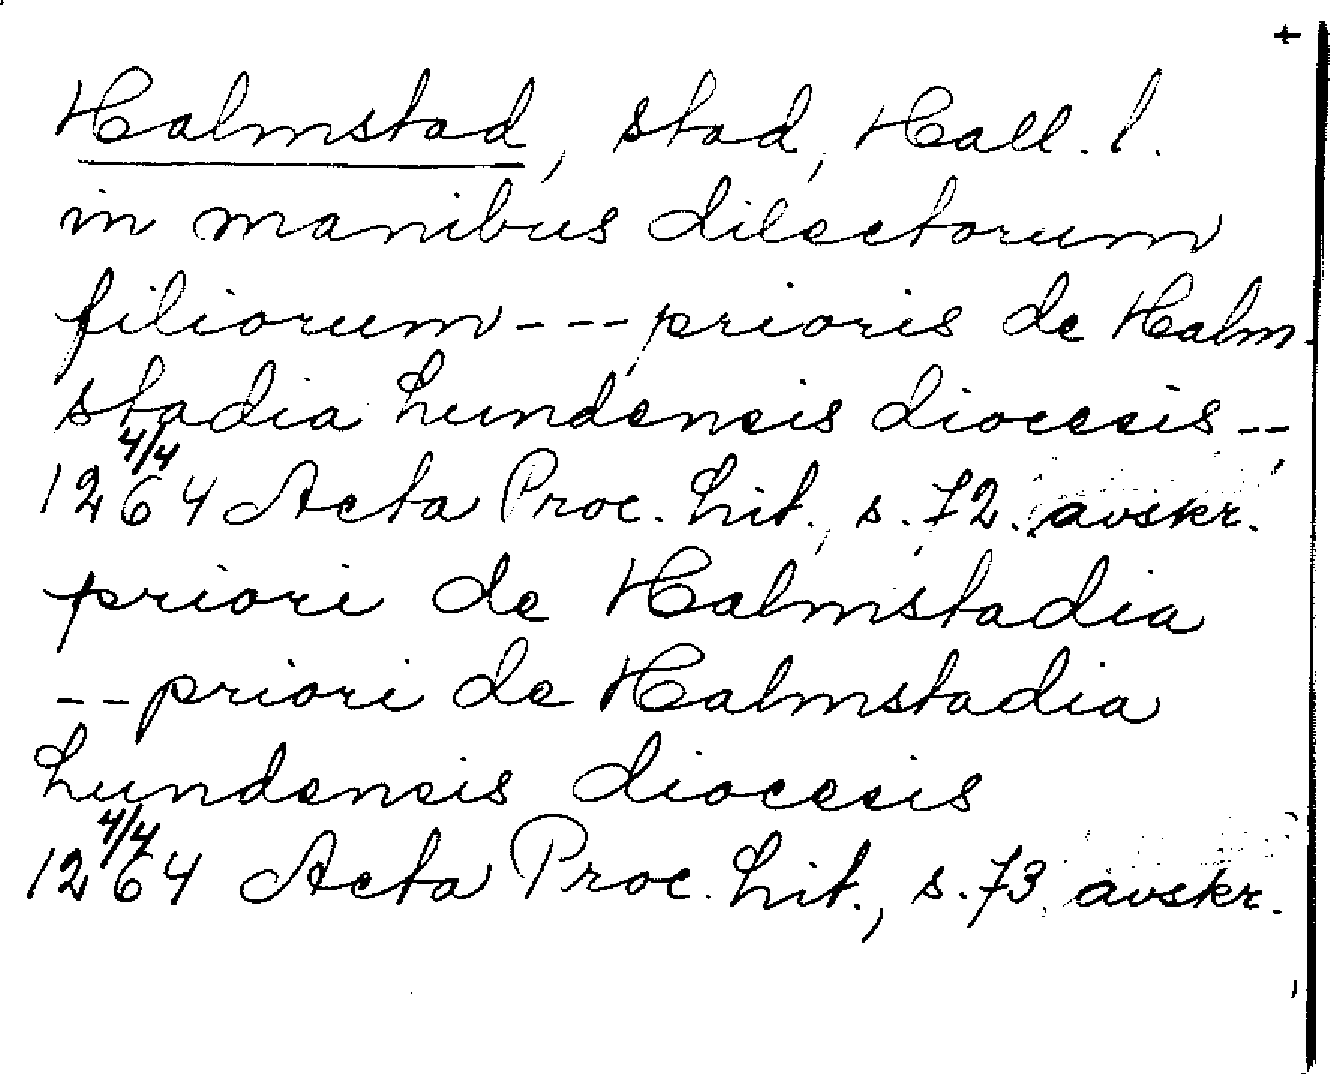 +
Halmstad, stad, Hall. l.
in manibus dilectorum
filiorum --- prioris de Halm-
stadia Lundensis diocesis --
4/4
1264 Acta Proc. Lit., s. 72. avskr.
priori de Halmstadia
-- priori de Halmstadia
Lundensis diocesis
4/4
1264 Acta Proc. Lit., s. 73. avskr.